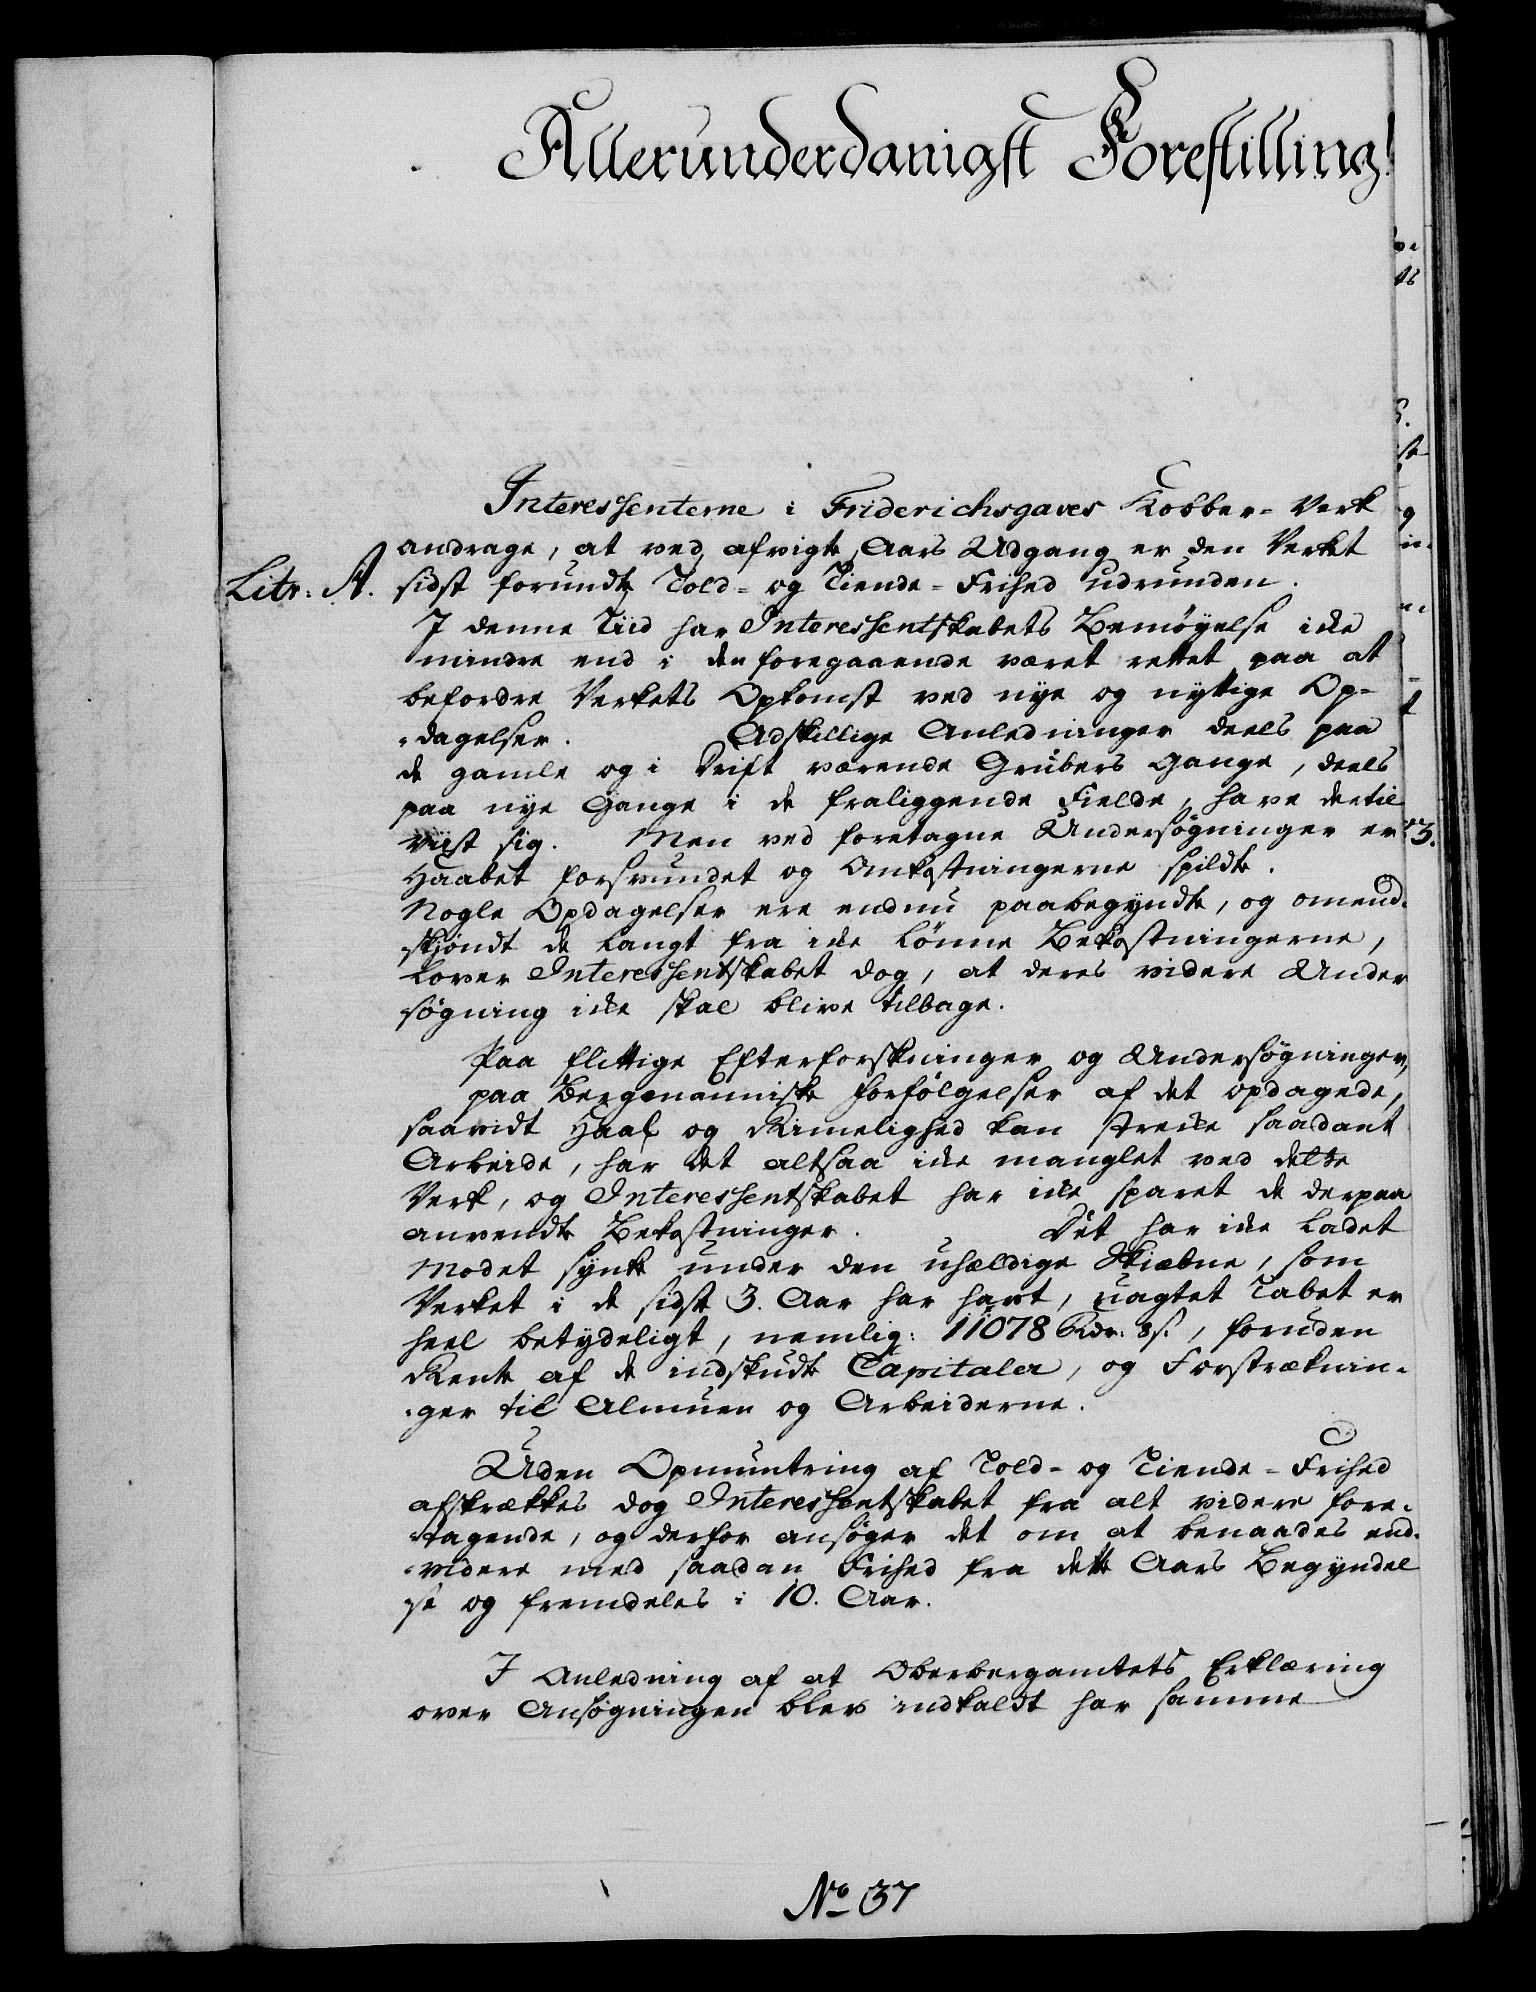 Allerunderdanigst Forestilling!
Interessenterne i Friderichsgaves Kobber-Verk
andrage, at ved afvigte Aars Udgang er den Verket
Litr: A. sidst forundte Told- og Tiende-Frihed udrunden.
I denne Tiid har Interessentskabets Bemøyelse icke
mindre end i den foregaaende været rettet paa at
befordre Verkets Opkomst ved nye og nyttige Op-
dagelser. Adskillige Anledninger deels paa
de gamle og i Drift værende Grubers Gange, deels
paa nye Gange i de fraliggende Fielde, have dertil
viist sig. Men ved foretagne Undersøgninger er
Haabet forsvundet og Omkostningerne spildte.
Nogle Opdagelser ere endnu paabegyndte, og omend-
skjøndt de langt fra icke lønne Bekostningerne,
lover Interessentskabet dog, at deres videre Under
søgning icke skal blive tilbage.
Paa flittige Efterforskninger og Undersøgninger,
paa Bergmanniske Forfølgelser af det opdagede,
saavidt Haab og Rimelighed kan strecke saadant
Arbeide, har det altsaa icke manglet ved dette
Verk, og Interessentskabet har icke sparet de derpaa
anvendte Bekostninger. Det har icke ladet
Modet synke under den uheldige Skiæbne, som
Verket i de sidste 3. Aar har havt, uagtet Tabet er
heel betydeligt, nemlig: 11078 Rdr. 8 s., foruden
Rente af de indskudte Capitaler, og Forstræknin-
ger til Almuen og Arbeiderne.
Uden Opmuntring af Told- og Tiende-Frihed
afskrækkes dog Interessentskabet fra alt videre fore-
tagende, og derfor ansøger det om at benaades end-
videre med saadan Frihed fra dette Aars Begyndel
se og fremdeles i 10. Aar.
I Anledning af at Oberbergamtets Erklæring
over Ansøgningen blev indkaldt har samme
No 37